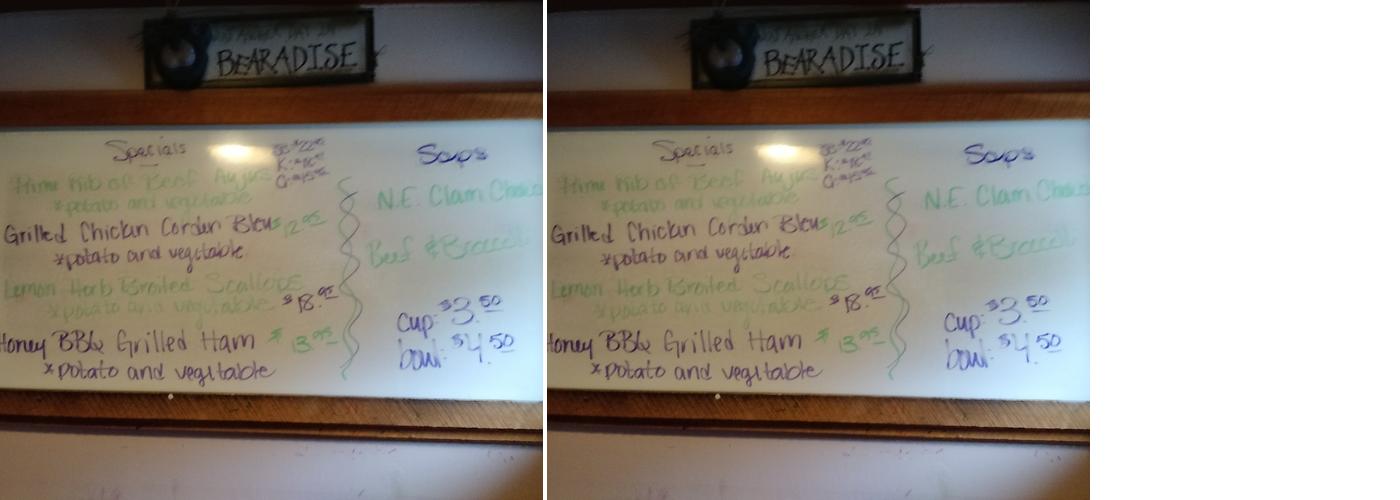 NOT ANOTHER DAY IN
BEARADISE
Specials
Prime Rib of Beef Aujus
*potato and vegetable
Grilled Chicken Cordon Bleu $12.95
*potato and vegetable
Lemon Herb Broiled Scallops
*potato and vegetable $18.95
Honey BBQ Grilled Ham $13.95
*potato and vegetable
Soups
N.E. Clam
Beef & Broccoli
cup: $3.50
bowl: $4.50
BEARADISE
Specials
Prime Rib of Beef Aujus
*potato and vegetable
Grilled Chicken Cordon Bleu $12.95
*potato and vegetable
Lemon Herb Broiled Scallops
*potato and vegetable $18.95
Honey BBQ Grilled Ham $13.95
*potato and vegetable
Soups
N.E. Clam
Beef & Broccoli
cup: $3.50
bowl: $4.50